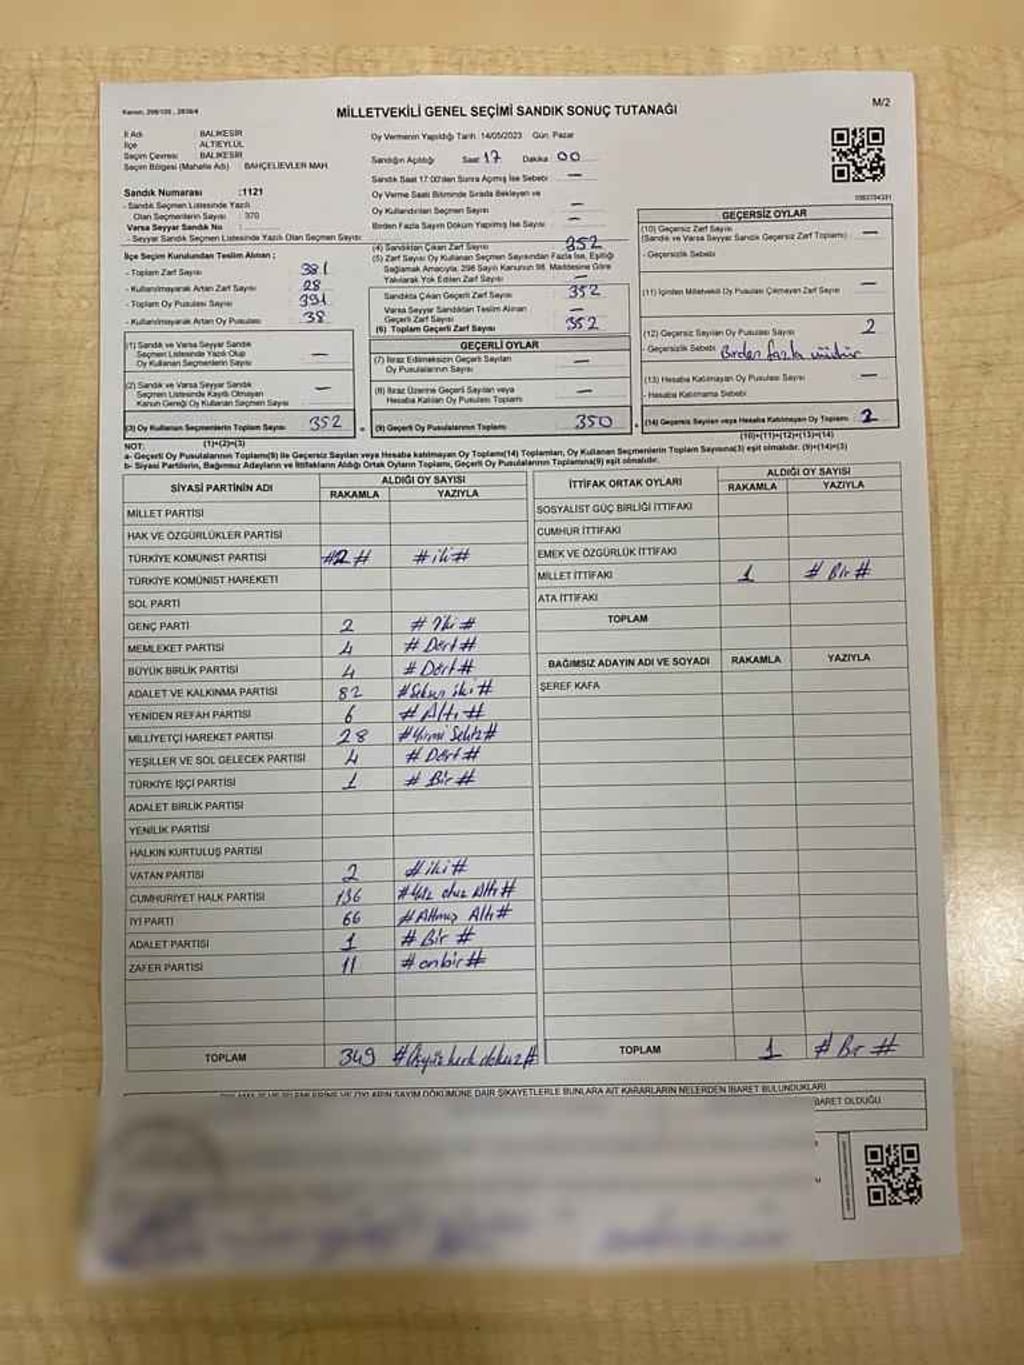 Kanun: 298/105 , 2839/4
MİLLETVEKİLİ GENEL SEÇİMİ SANDIK SONUÇ TUTANAĞI
M/2
İl Adı BALIKESİR
İlçe ALTIEYLÜL
Seçim Çevresi BALIKESİR
Seçim Bölgesi (Mahalle Adı) BAHÇELİEVLER MAH.
Sandık Numarası :1121
- Sandık Seçmen Listesinde Yazılı
Olan Seçmenlerin Sayısı : 370
Varsa Seyyar Sandık No :
- Seyyar Sandık Seçmen Listesinde Yazılı Olan Seçmen Sayısı:
İlçe Seçim Kurulundan Teslim Alınan ;
- Toplam Zarf Sayısı 381
- Kullanılmayarak Artan Zarf Sayısı 28
- Toplam Oy Pusulası Sayısı 391
- Kullanılmayarak Artan Oy Pusulası 38
(1) Sandık ve Varsa Seyyar Sandık
Seçmen Listesinde Yazılı Olup
Oy Kullanan Seçmenlerin Sayısı —
(2) Sandık ve Varsa Seyyar Sandık
Seçmen Listesinde Kayıtlı Olmayan
Kanun Gereği Oy Kullanan Seçmen Sayısı —
(3) Oy Kullanan Seçmenlerin Toplam Sayısı 352
(1)+(2)=(3)
Oy Vermenin Yapıldığı Tarih 14/05/2023 Gün: Pazar
Sandığın Açıldığı Saat 17 Dakika 00
Sandık Saat 17:00'den Sonra Açılmış İse Sebebi: —
Oy Verme Saati Bitiminde Sırada Bekleyen ve
Oy Kullandırılan Seçmen Sayısı —
Birden Fazla Sayım Döküm Yapılmış İse Sayısı —
(4) Sandıktan Çıkan Zarf Sayısı 352
(5) Zarf Sayısı Oy Kullanan Seçmen Sayısından Fazla İse, Eşitliği
Sağlamak Amacıyla, 298 Sayılı Kanunun 98. Maddesine Göre
Yakılarak Yok Edilen Zarf Sayısı —
Sandıkta Çıkan Geçerli Zarf Sayısı 352
Varsa Seyyar Sandıktan Teslim Alınan
Geçerli Zarf Sayısı —
(6) Toplam Geçerli Zarf Sayısı 352
GEÇERLİ OYLAR
(7) İtiraz Edilmeksizin Geçerli Sayılan
Oy Pusulalarının Sayısı —
(8) İtiraz Üzerine Geçerli Sayılan veya
Hesaba Katılan Oy Pusulası Toplamı —
(9) Geçerli Oy Pusulalarının Toplamı 350
GEÇERSİZ OYLAR
(10) Geçersiz Zarf Sayısı
(Sandık ve Varsa Seyyar Sandık Geçersiz Zarf Toplamı) —
- Geçersizlik Sebebi
(11) İçinden Milletvekili Oy Pusulası Çıkmayan Zarf Sayısı —
(12) Geçersiz Sayılan Oy Pusulası Sayısı 2
- Geçersizlik Sebebi Birden fazla mühür
(13) Hesaba Katılmayan Oy Pusulası Sayısı —
- Hesaba Katılmama Sebebi
(14) Geçersiz Sayılan veya Hesaba Katılmayan Oy Toplamı 2
(10)+(11)+(12)+(13)=(14)
NOT:
a- Geçerli Oy Pusulalarının Toplamı(9) ile Geçersiz Sayılan veya Hesaba katılmayan Oy Toplamı(14) Toplamları, Oy Kullanan Seçmenlerin Toplam Sayısına(3) eşit olmalıdır. (9)+(14)=(3)
b- Siyasi Partilerin, Bağımsız Adayların ve İttifakların Aldığı Ortak Oyların Toplamı, Geçerli Oy Pusulalarının Toplamına(9) eşit olmalıdır.
SİYASİ PARTİNİN ADI ALDIĞI OY SAYISI
RAKAMLA YAZIYLA
MİLLET PARTİSİ
HAK VE ÖZGÜRLÜKLER PARTİSİ
TÜRKİYE KOMÜNİST PARTİSİ #2# #iki#
TÜRKİYE KOMÜNİST HAREKETİ
SOL PARTİ
GENÇ PARTİ 2 #İki#
MEMLEKET PARTİSİ 4 #Dört#
BÜYÜK BİRLİK PARTİSİ 4 #Dört#
ADALET VE KALKINMA PARTİSİ 82 #Seksen iki#
YENİDEN REFAH PARTİSİ 6 #Altı#
MİLLİYETÇİ HAREKET PARTİSİ 28 #Yirmi Sekiz#
YEŞİLLER VE SOL GELECEK PARTİSİ 4 #Dört#
TÜRKİYE İŞÇİ PARTİSİ 1 #Bir#
ADALET BİRLİK PARTİSİ
YENİLİK PARTİSİ
HALKIN KURTULUŞ PARTİSİ
VATAN PARTİSİ 2 #iki#
CUMHURİYET HALK PARTİSİ 136 #Yüz otuz Altı#
İYİ PARTİ 66 #Altmış Altı#
ADALET PARTİSİ 1 #Bir#
ZAFER PARTİSİ 11 #onbir#
TOPLAM 349 #Üçyüz kırk dokuz#
İTTİFAK ORTAK OYLARI ALDIĞI OY SAYISI
RAKAMLA YAZIYLA
SOSYALİST GÜÇ BİRLİĞİ İTTİFAKI
CUMHUR İTTİFAKI
EMEK VE ÖZGÜRLÜK İTTİFAKI
MİLLET İTTİFAKI 1 #Bir#
ATA İTTİFAKI
TOPLAM
BAĞIMSIZ ADAYIN ADI VE SOYADI RAKAMLA YAZIYLA
ŞEREF KAFA
TOPLAM 1 #Bir#
VE OYLARIN SAYIM DÖKÜMÜNE DAİR ŞİKAYETLERLE BUNLARA AİT KARARLARIN NELERDEN İBARET BULUNDUKLARI
İBARET OLDUĞU